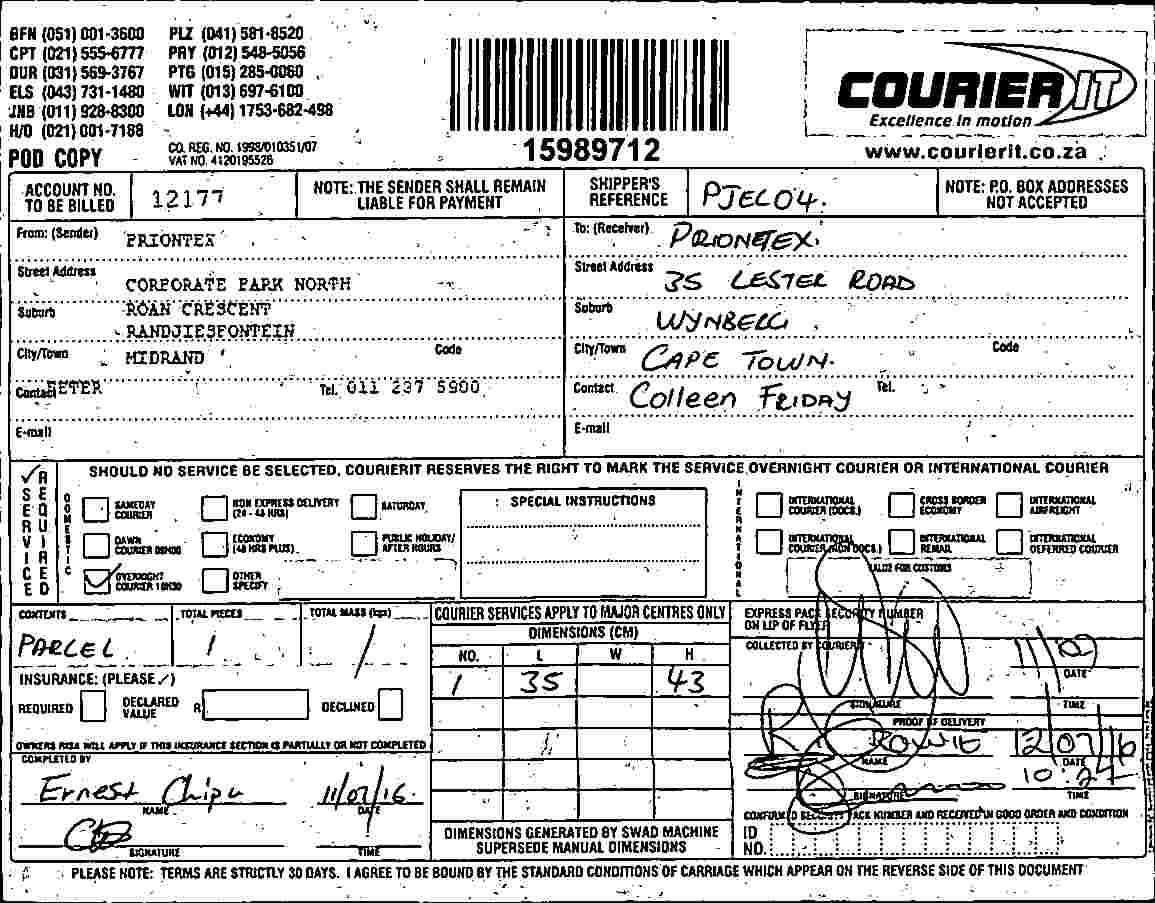 BFN (051) 001-3600 PLZ (041) 581-8520
CPT (021) 555-6777 PRY (012) 548-5056
DUR (031) 569-3767 PTG (015) 285-0060
ELS (043) 731-1480 WIT (013) 697-6100
JNB (011) 928-8300 LON (+44) 1753-682-498
H/O (021) 001-7188
POD COPY
CO. REG. NO. 1998/010351/07
VAT NO. 4120195526
15989712
COURIER IT
Excellence in motion
www.courierit.co.za
ACCOUNT NO. TO BE BILLED 12177
NOTE: THE SENDER SHALL REMAIN LIABLE FOR PAYMENT
SHIPPER'S REFERENCE PJEL04.
NOTE: P.O. BOX ADDRESSES NOT ACCEPTED
From: (Sender) PRIONTEX
Street Address CORPORATE PARK NORTH
Suburb ROAN CRESCENT
RANDJIESFONTEIN
City/Town MIDRAND Code
Contact PETER Tel. 011 237 5900
E-mail
To: (Receiver) PRIONTEX
Street Address 35 LESTER ROAD
Suburb WYNBERG
City/Town CAPE TOWN. Code
Contact Colleen FRIDAY Tel.
E-mail
SHOULD NO SERVICE BE SELECTED, COURIERIT RESERVES THE RIGHT TO MARK THE SERVICE OVERNIGHT COURIER OR INTERNATIONAL COURIER
SERVICE REQUIRED
DOMESTIC
SAMEDAY COURIER
NON EXPRESS DELIVERY (24 - 48 HRS)
SATURDAY
DAWN COURIER 08H00
ECONOMY (48 HRS PLUS)
PUBLIC HOLIDAY/ AFTER HOURS
OVERNIGHT COURIER 10H30
OTHER SPECIFY
SPECIAL INSTRUCTIONS
INTERNATIONAL
INTERNATIONAL COURIER (DOCS.)
CROSS BORDER ECONOMY
INTERNATIONAL AIRFREIGHT
INTERNATIONAL COURIER (NON DOCS.)
INTERNATIONAL REMAIL
INTERNATIONAL DEFERRED COURIER
VALUE FOR CUSTOMS
CONTENTS PARCEL
TOTAL PIECES 1
TOTAL MASS (kgs) 1
INSURANCE: (PLEASE ✓)
REQUIRED DECLARED VALUE R DECLINED
OWNERS RISK WILL APPLY IF THIS INSURANCE SECTION IS PARTIALLY OR NOT COMPLETED
COMPLETED BY
Ernest Chipu 11/07/16
NAME DATE
SIGNATURE TIME
COURIER SERVICES APPLY TO MAJOR CENTRES ONLY
DIMENSIONS (CM)
NO. L W H
1 35 43
DIMENSIONS GENERATED BY SWAD MACHINE SUPERSEDE MANUAL DIMENSIONS
EXPRESS PACK SECURITY NUMBER ON LIP OF FLYER
COLLECTED BY COURIER 11/07
DATE
SIGNATURE TIME
PROOF OF DELIVERY
12/07/16
NAME DATE
10:27
SIGNATURE TIME
CONFIRM ID SECURITY PACK NUMBER AND RECEIVED IN GOOD ORDER AND CONDITION
ID NO.
PLEASE NOTE: TERMS ARE STRICTLY 30 DAYS. I AGREE TO BE BOUND BY THE STANDARD CONDITIONS OF CARRIAGE WHICH APPEAR ON THE REVERSE SIDE OF THIS DOCUMENT